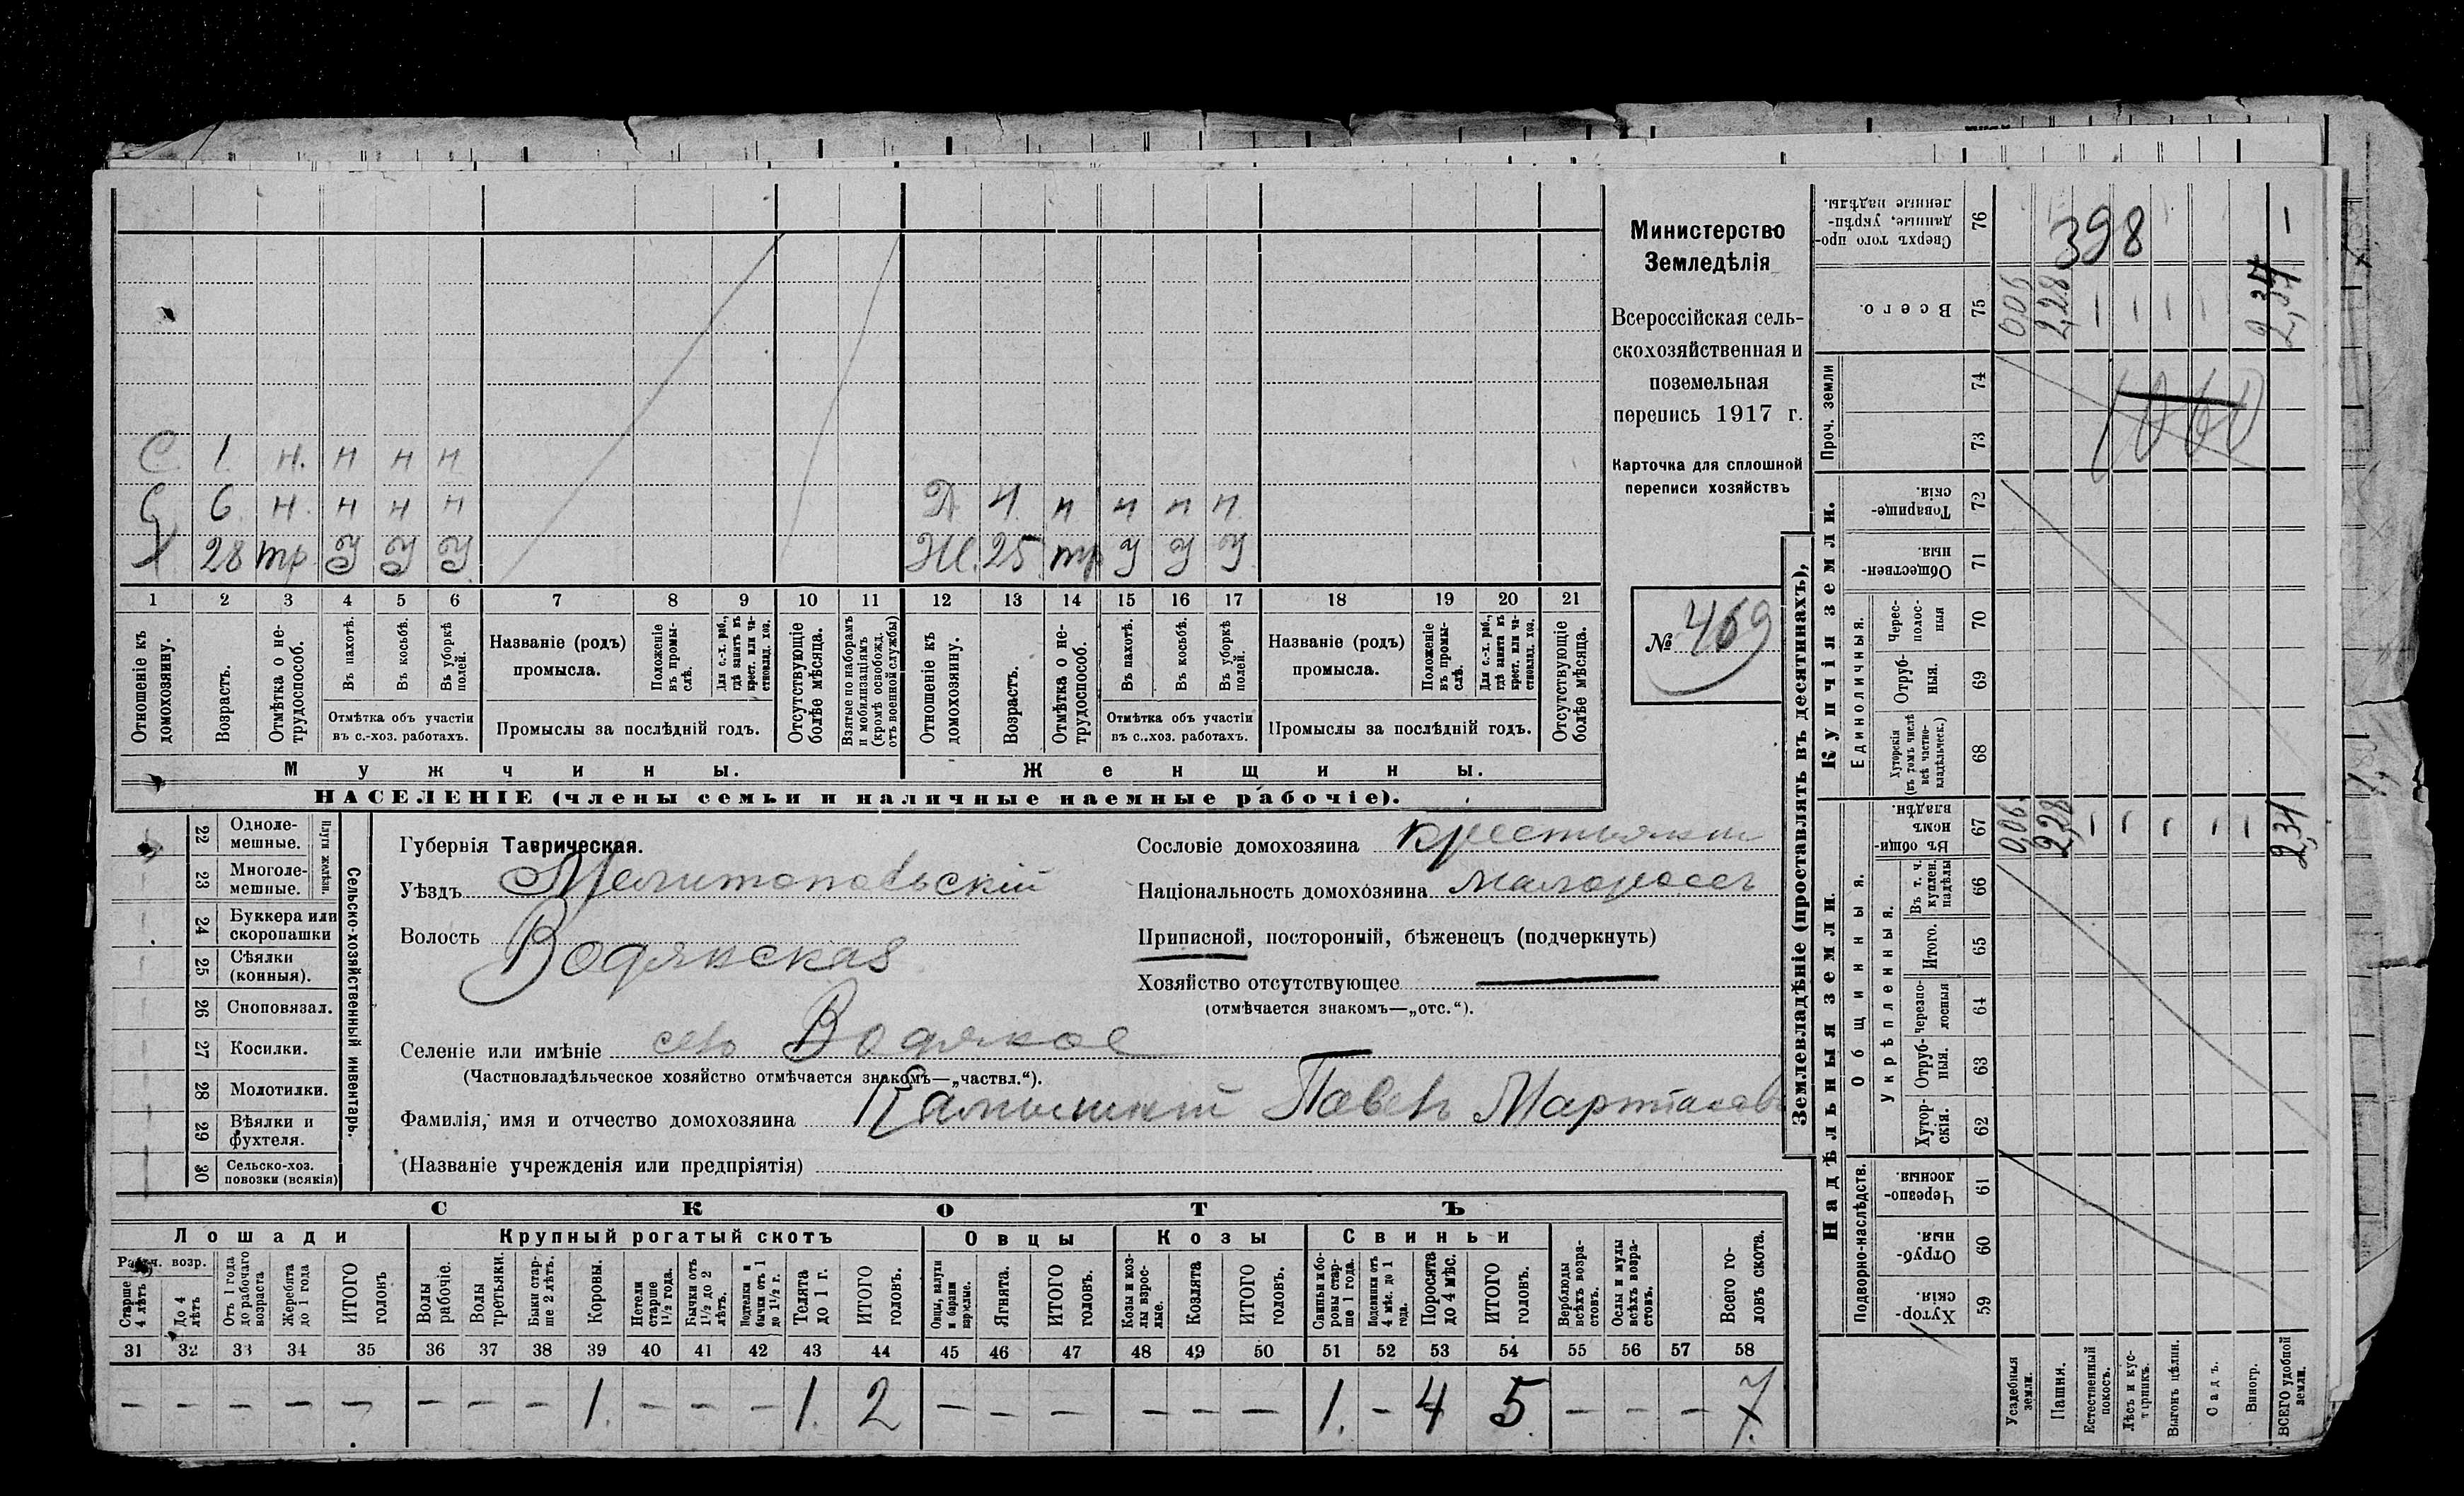 С 1. н. н н н
С 6. н. н н н Д 4 н н н н
Х 28 тр У У У Ж. 25 тр У У У
1 2 3 4 5 6 7 8 9 10 11 12 13 14 15 16 17 18 19 20 21
Отношеніе къ домохозяину.
Возрастъ.
Отмѣтка о не-
трудоспособ.
Въ пахотѣ.
Въ косьбѣ.
Въ уборкѣ
полей.
Отмѣтка объ участіи
въ с.-хоз. работахъ.
Названіе (родъ)
промысла.
Положеніе
въ промы-
слѣ.
Для с.-х. раб.,
гдѣ занятъ въ
крест. или ча-
стновлад. хоз.
Промыслы за послѣдній годъ.
Отсутствующіе
болѣе мѣсяца.
Взятые по наборамъ
и мобилизаціямъ
(кромѣ освобожд.
отъ военной службы)
Отношеніе къ
домохозяину.
Возрастъ.
Отмѣтка о не-
трудоспособ.
Въ пахотѣ.
Въ косьбѣ.
Въ уборкѣ
полей.
Отмѣтка объ участіи
въ с..хоз. работахъ.
Названіе (родъ)
промысла.
Положеніе
въ промы-
слѣ.
Для с.-х. раб.,
гдѣ занятъ въ
крест. или ча-
стновлад. хоз.
Промыслы за послѣдній годъ.
Отсутствующіе
болѣе мѣсяца.
Мужчины.
Женщины.
НАСЕЛЕНІЕ (члены семьи и наличные наемные рабочіе).
Министерство
Земледѣлія
Всероссійская сель-
скохозяйственная и
поземельная
перепись 1917 г.
Карточка для сплошной
переписи хозяйствъ
№ 469
22 Одноле-
мешные.
23 Многоле-
мешные.
Плуги желѣзн.
24 Буккера или
скоропашки
25 Сѣялки
(конныя).
26 Сноповязал.
27 Косилки.
28 Молотилки.
29 Вѣялки и
фухтеля.
30 Сельско-хоз.
повозки (всякія)
Сельско-хозяйственный инвентарь.
Губернія Таврическая.
Уѣздъ Мелитопольскій
Волость Водянская
Селеніе или имѣніе село Водяное
(Частновладѣльческое хозяйство отмѣчается знакомъ—„частвл.“).
Фамилія, имя и отчество домохозяина Павелъ
(Названіе учрежденія или предпріятія)
Сословіе домохозяина крестьянин
Національность домохозяина малороссъ
Приписной, посторонній, бѣженецъ (подчеркнуть)
Хозяйство отсутствующее —
(отмѣчается знакомъ—„отс.“).
СКОТЪ
Лошади
Рабоч. возр.
Старше
4 лѣтъ
До 4
лѣтъ
Отъ 1 года
до рабочаго
возраста
Жеребята
до 1 года
ИТОГО
головъ
Крупный рогатый скотъ
Волы
рабочіе.
Волы
третьяки.
Быки стар-
ше 2 лѣтъ.
Коровы.
Нетели
старше
1½ года.
Бычки отъ
1½ до 2
лѣтъ.
Подтелки и
бычки отъ 1
до 1½ г.
Телята
до 1 г.
ИТОГО
головъ.
Овцы
Овцы, валухи
и бараны
взрослые.
Ягнята.
ИТОГО
головъ.
Козы
Козы и коз-
лы взрос-
лые.
Козлята
ИТОГО
головъ.
Свиньи
Свиньи и бо-
ровы стар-
ше 1 года.
Подсвинки отъ
4 мѣс. до 1
года.
Поросята
до 4 мѣс.
ИТОГО
головъ.
Верблюды
всѣхъ возра-
стовъ.
Ослы и мулы
всѣхъ возра-
стовъ.
Всего го-
ловъ скота.
31 32 33 34 35 36 37 38 39 40 41 42 43 44 45 46 47 48 49 50 51 52 53 54 55 56 57 58
— — — — — — — — 1. — — — 1. 2 — — — — — — 1. — 4 5 — — — 7.
Землевладѣніе (проставлять въ десятинахъ),
Надѣльныя земли.
Купчія земли.
Проч. земли
Сверхъ того про-
данные, укрѣп-
ленные надѣлы.
76 398 —
Всего.
75 0,06 2,28 — — — — 2,34 2,34
74 1060
73
Товарище-
скія.
72
Обществен-
ныя.
71
Единоличныя.
Черес-
полос-
ныя
70
Отруб-
ныя.
69
Хуторскія
(въ томъ числѣ
всѣ частно-
владѣльческ.)
68
Въ общи-
номъ
владѣн.
67 0,06 2,28 — — — — — 2,34
Общинныя.
Укрѣпленныя.
Въ т. ч.
куплен.
надѣлы
66
Итого.
65
Черезпо-
лосныя
64
Отруб-
ныя.
63
Хутор-
скія.
62
Подворно-наслѣдств.
Черезпо-
лосныя.
61
Отруб-
ныя.
60
Хутор-
скія.
59
Усадебныя
земли.
Пашня.
Естественный
покосъ.
Лѣсъ и кус-
тарникъ.
Выгонъ цѣлин.
Садъ.
Виногр.
ВСЕГО удобной
земли.